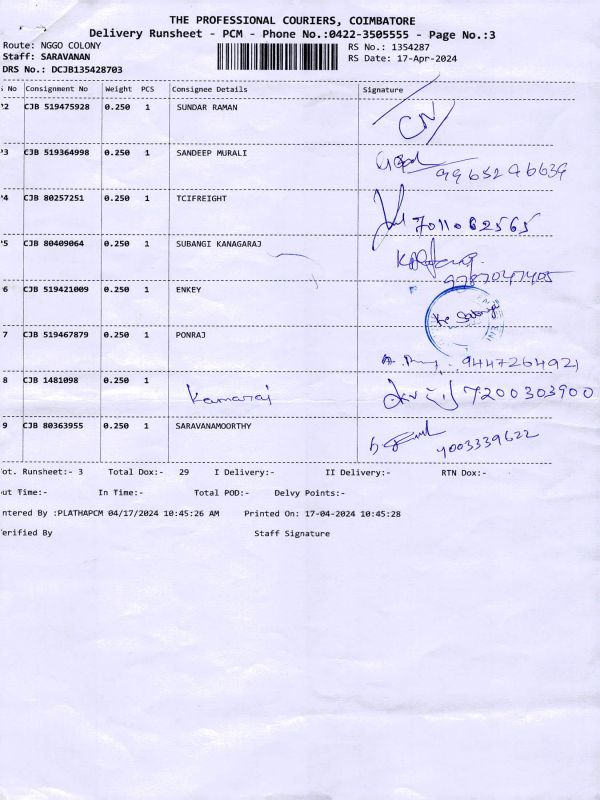 THE PROFESSIONAL COURIERS, COIMBATORE
Delivery Runsheet - PCM - Phone No.:0422-3505555 - Page No.:3
Route: NGGO COLONY
RS No.: 1354287
Staff: SARAVANAN
RS Date: 17-Apr-2024
DRS No.: DCJB135428703
S No Consignment No Weight PCS Consignee Details Signature
2 CJB 519475928 0.250 1 SUNDAR RAMAN
3 CJB 519364998 0.250 1 SANDEEP MURALI
9965296639
4 CJB 80257251 0.250 1 TCIFREIGHT
7011062565
5 CJB 80409064 0.250 1 SUBANGI KANAGARAJ
9787047405
6 CJB 519421009 0.250 1 ENKEY
7 CJB 519467879 0.250 1 PONRAJ
9447264921
8 CJB 1481098 0.250 1 Kamaraj 7200303900
9 CJB 80363955 0.250 1 SARAVANAMOORTHY
9003339622
ot. Runsheet:- 3 Total Dox:- 29 I Delivery:- II Delivery:- RTN Dox:-
ut Time:- In Time:- Total POD:- Delvy Points:-
ntered By :PLATHAPCM 04/17/2024 10:45:26 AM Printed On: 17-04-2024 10:45:28
erified By Staff Signature